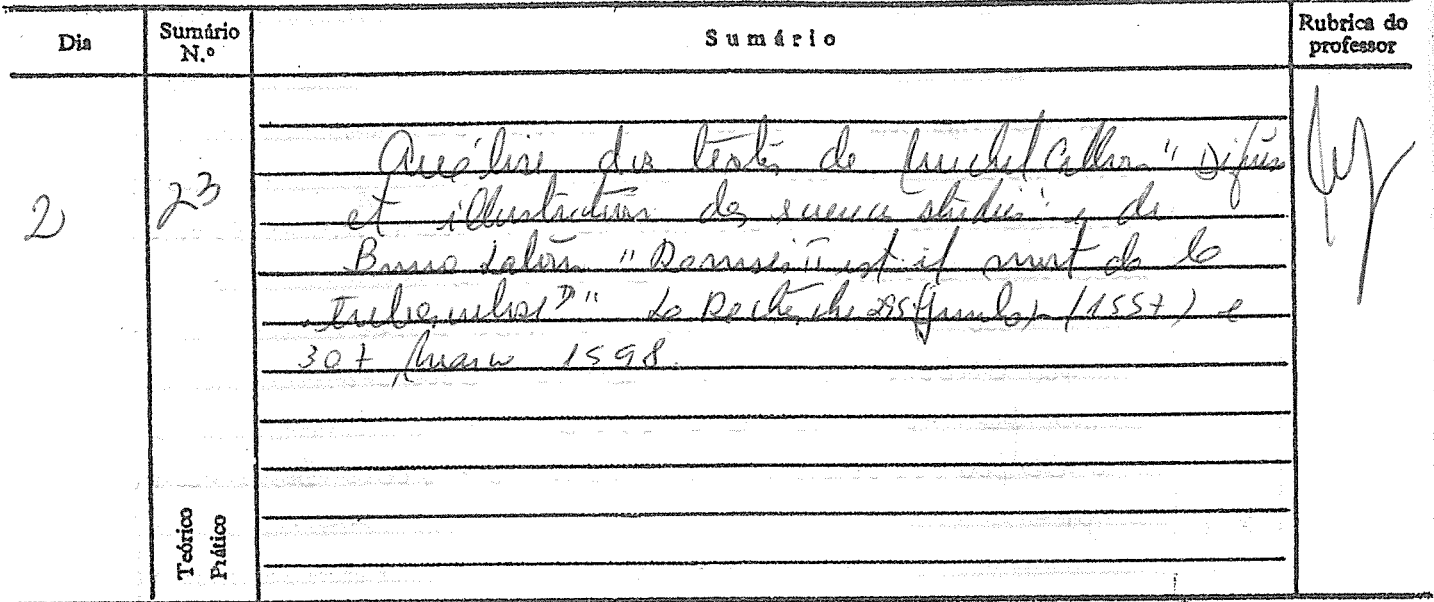 Dia
Sumário N.º
Sumário
Rubrica do professor
2
23
Análise dos textos de Michel Callon "Défense
et illustration des science studies" e de
Bruno Latour "Ramsès II est-il mort de la
tuberculose?" La Recherche 299 (1997) e
307 março 1998.
Teórico
Prático